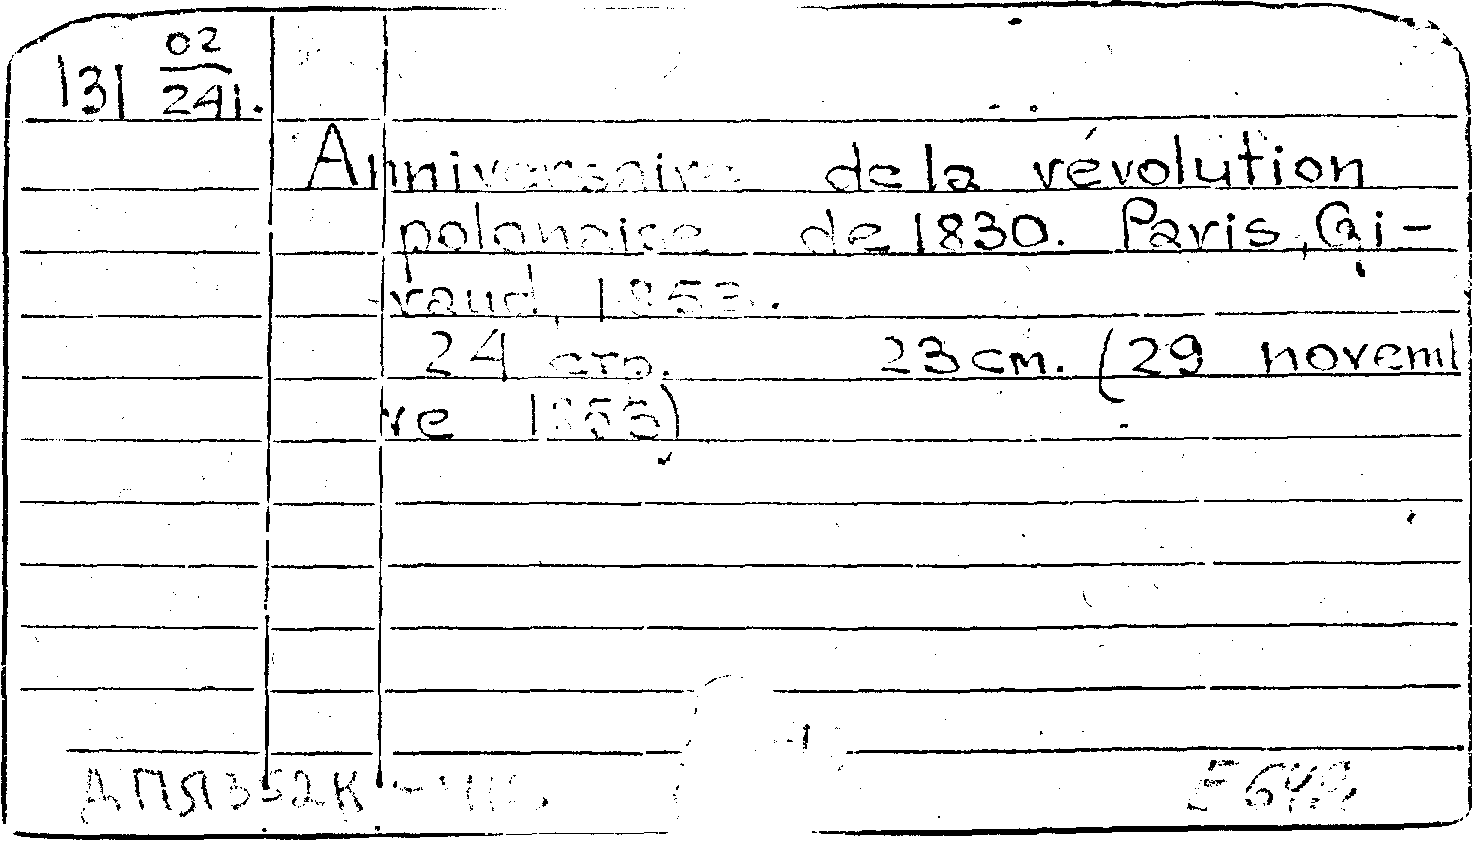 131 02/241.
Anniversaire de la révolution
polonaise de 1830. Paris, Gi-
raud, 1853.
24 стр. 23 см. (29 novemb
re 1853)